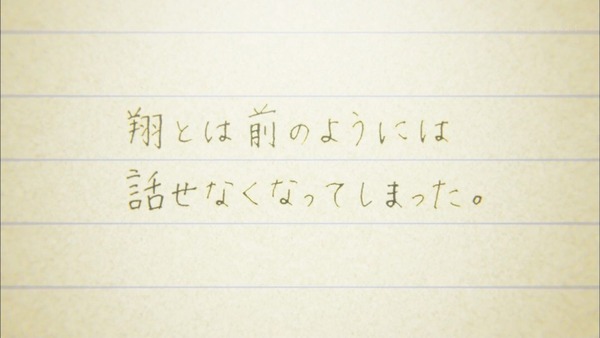 翔とは前のようには
話せなくなってしまった。